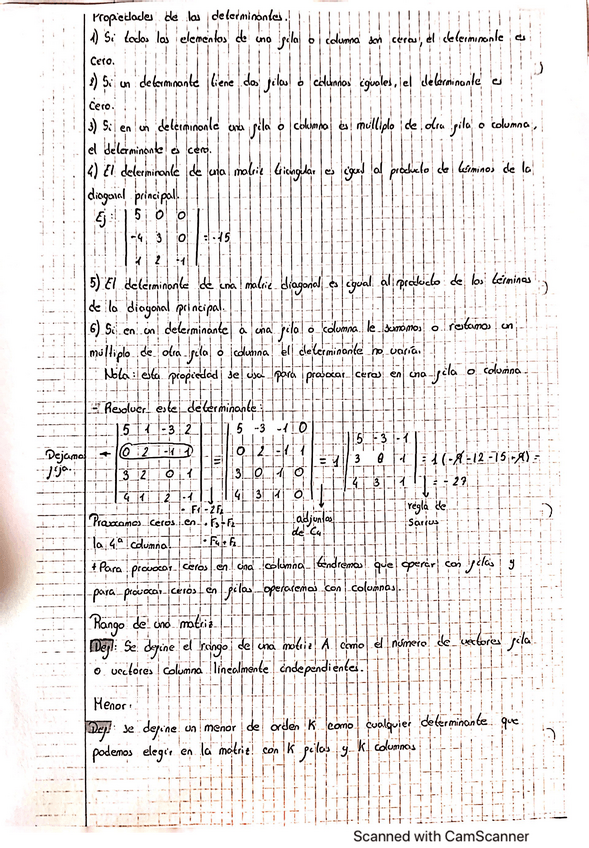 Propiedades de los determinantes.
1) Si todos los elementos de una fila o columna son ceros, el determinante es
cero.
2) Si un determinante tiene dos filas o columnas iguales, el determinante es
cero.
3) Si en un determinante una fila o columna es múltiplo de otra fila o columna,
el determinante es cero.
4) El determinante de una matriz triangular es igual al producto de términos de la
diagonal principal.
Ej: | 5 0 0 |
| -4 3 0 | = -15
| 1 2 -1 |
5) El determinante de una matriz diagonal es igual al producto de los términos
de la diagonal principal.
6) Si en un determinante a una fila o columna le sumamos o restamos un
múltiplo de otra fila o columna el determinante no varía.
Nota: esta propiedad se usa para provocar ceros en una fila o columna.
- Resolver este determinante:
| 5 1 -3 2 | | 5 -3 -1 0 | | 5 -3 -1 |
Dejamos fija. ← | 0 2 -1 1 | = | 0 2 -1 1 | = 1 | 3 0 1 | = 1 (-9-12-15+9) =
| 3 2 0 1 | | 3 0 1 0 | | 4 3 1 | = -27
| 4 1 2 -1 | | 4 3 1 0 |
· F1-2F2
Provocamos ceros en · F3-F2
la 4ª columna. · F4+F2
adjuntos
de C4
regla de
Sarrus
+ Para provocar ceros en una columna tendremos que operar con filas y
para provocar ceros en filas operaremos con columnas.
Rango de una matriz.
Def: Se define el rango de una matriz A como el número de vectores fila
o vectores columna linealmente independientes.
Menor.
Def: se define un menor de orden K como cualquier determinante que
podemos elegir en la matriz con K filas y K columnas
Scanned with CamScanner